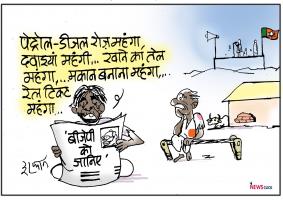 पेट्रोल-डीजल रोज़ महंगा,
दवाइयां महंगी... खाने का तेल
महंगा,.. मकान बनाना महंगा,...
रेल टिकट
महंगा...
'बीजेपी
को
जानिए'
इरफान
NEWSCLICK